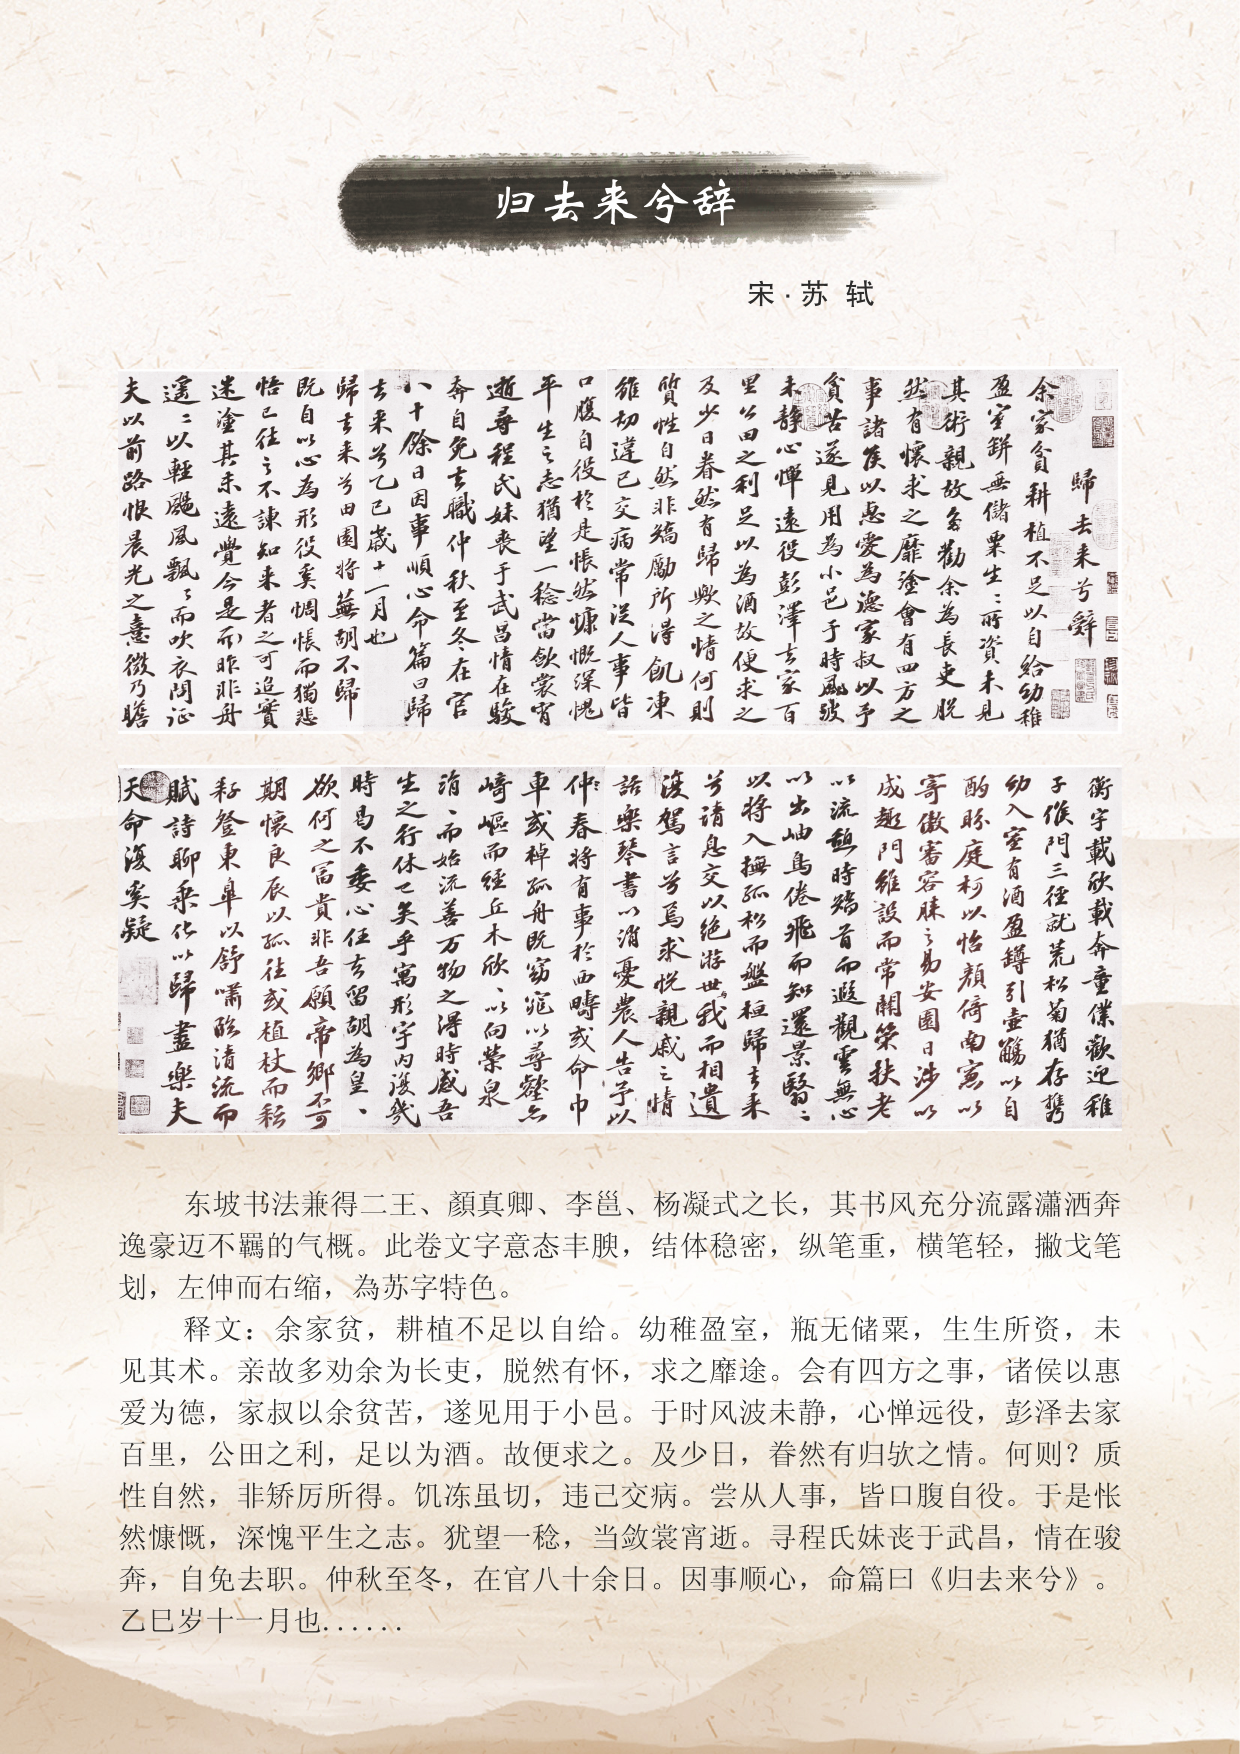 归去来兮辞
宋·苏 轼
歸去来兮辭
余家貧耕植不足以自給幼稚
盈室缾無儲粟生〻所資未見
其術親故多勸余為長吏脱
然有懷求之靡塗會有四方之
事諸侯以惠愛為德家叔以予
貧苦遂見用為小邑于時風波
未静心憚遠役彭澤去家百
里公田之利足以為酒故便求之
及少日眷然有歸歟之情何則
質性自然非矯勵所得飢凍
雖切違已交病常從人事皆
口腹自役於是悵然慷慨深愧
平生之志猶望一稔當斂裳宵
逝尋程氏妹喪于武昌情在駿
奔自免去職仲秋至冬在官
八十餘日因事順心命篇曰歸
去来兮乙巳歲十一月也
歸去来兮田園将蕪胡不歸
既自以心為形役奚惆悵而獨悲
悟已往之不諫知来者之可追實
迷塗其未遠覺今是而昨非舟
遥〻以輕颺風飄〻而吹衣問征
夫以前路恨晨光之熹微乃瞻
衡宇載欣載奔童僕歡迎稚
子候門三徑就荒松菊猶存携
幼入室有酒盈罇引壺觴以自
酌眄庭柯以怡顔倚南窓以
寄傲審容膝之易安園日涉以
成趣門雖設而常關策扶老
以流憩時矯首而遐觀雲無心
以出岫鳥倦飛而知還景翳〻
以将入撫孤松而盤桓歸去来
兮請息交以絶游世與我而相遺
復駕言兮焉求悦親戚之情
話樂琴書以消憂農人告予以
仲春将有事於西疇或命巾
車或棹孤舟既窈窕以尋壑亦
崎嶇而經丘木欣〻以向榮泉
涓〻而始流善万物之得時感吾
生之行休已矣乎寓形宇内復幾
時曷不委心任去留胡為皇〻
欲何之富貴非吾願帝鄉不可
期懷良辰以孤往或植杖而耘
耔登東皋以舒嘯臨清流而
賦詩聊乘化以歸盡樂夫
天命復奚疑
东坡书法兼得二王、顏真卿、李邕、杨凝式之长，其书风充分流露瀟洒奔
逸豪迈不羈的气概。此卷文字意态丰腴，结体稳密，纵笔重，横笔轻，撇戈笔
划，左伸而右缩，為苏字特色。
释文：余家贫，耕植不足以自给。幼稚盈室，瓶无储粟，生生所资，未
见其术。亲故多劝余为长吏，脱然有怀，求之靡途。会有四方之事，诸侯以惠
爱为德，家叔以余贫苦，遂见用于小邑。于时风波未静，心惮远役，彭泽去家
百里，公田之利，足以为酒。故便求之。及少日，眷然有归欤之情。何则？质
性自然，非矫厉所得。饥冻虽切，违己交病。尝从人事，皆口腹自役。于是怅
然慷慨，深愧平生之志。犹望一稔，当敛裳宵逝。寻程氏妹丧于武昌，情在骏
奔，自免去职。仲秋至冬，在官八十余日。因事顺心，命篇曰《归去来兮》。
乙巳岁十一月也......